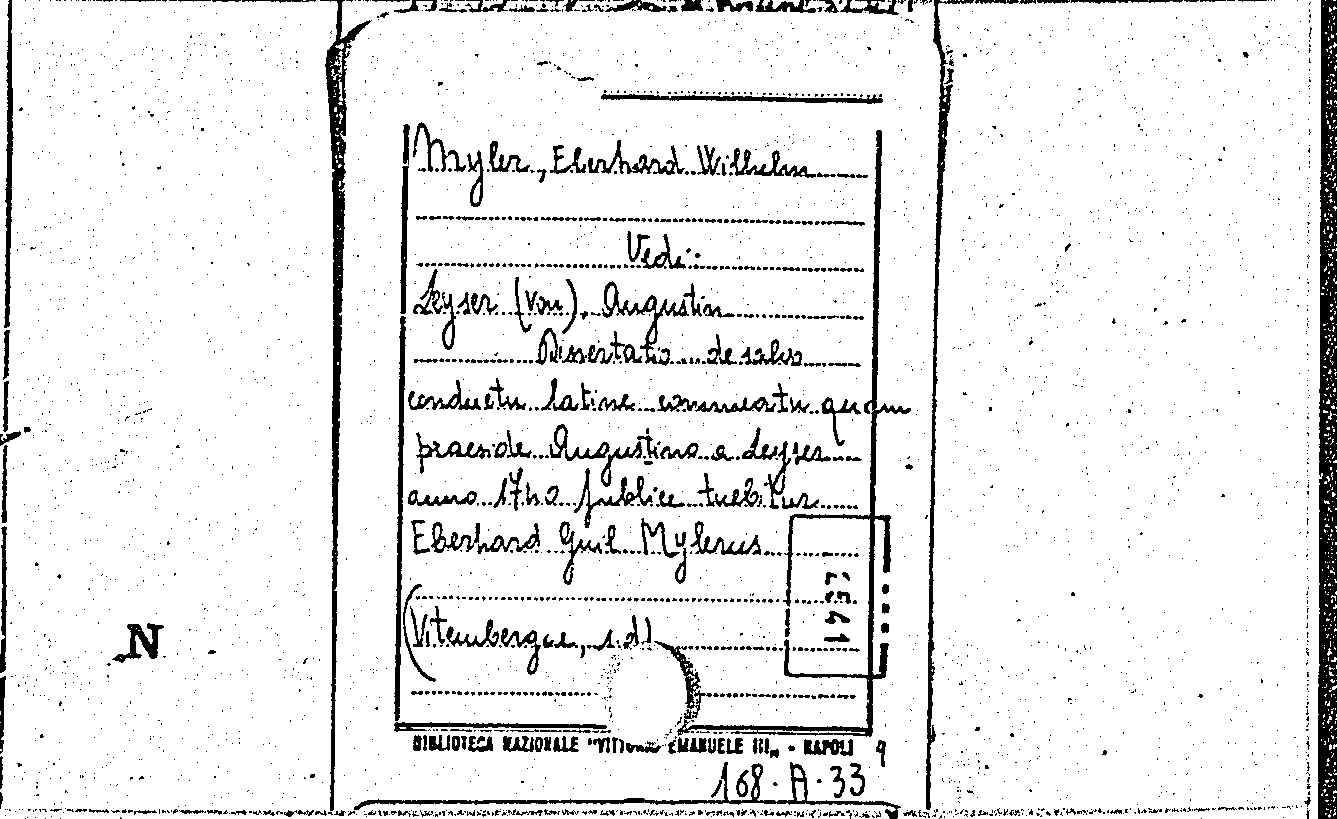 Myler, Eberhard Wilhelm
Vedi:
Leyser (von), Augustin
Dissertatio de salvo
conductu latine commeatu quam
praeside Augustino a Leyser
anno 1740 publice tuebitur
Eberhard Guil Mylerus
(Vitembergae, s.d)
2341
BIBLIOTECA NAZIONALE "VITTORIO EMANUELE III„ - NAPOLI 9
168. A. 33
N